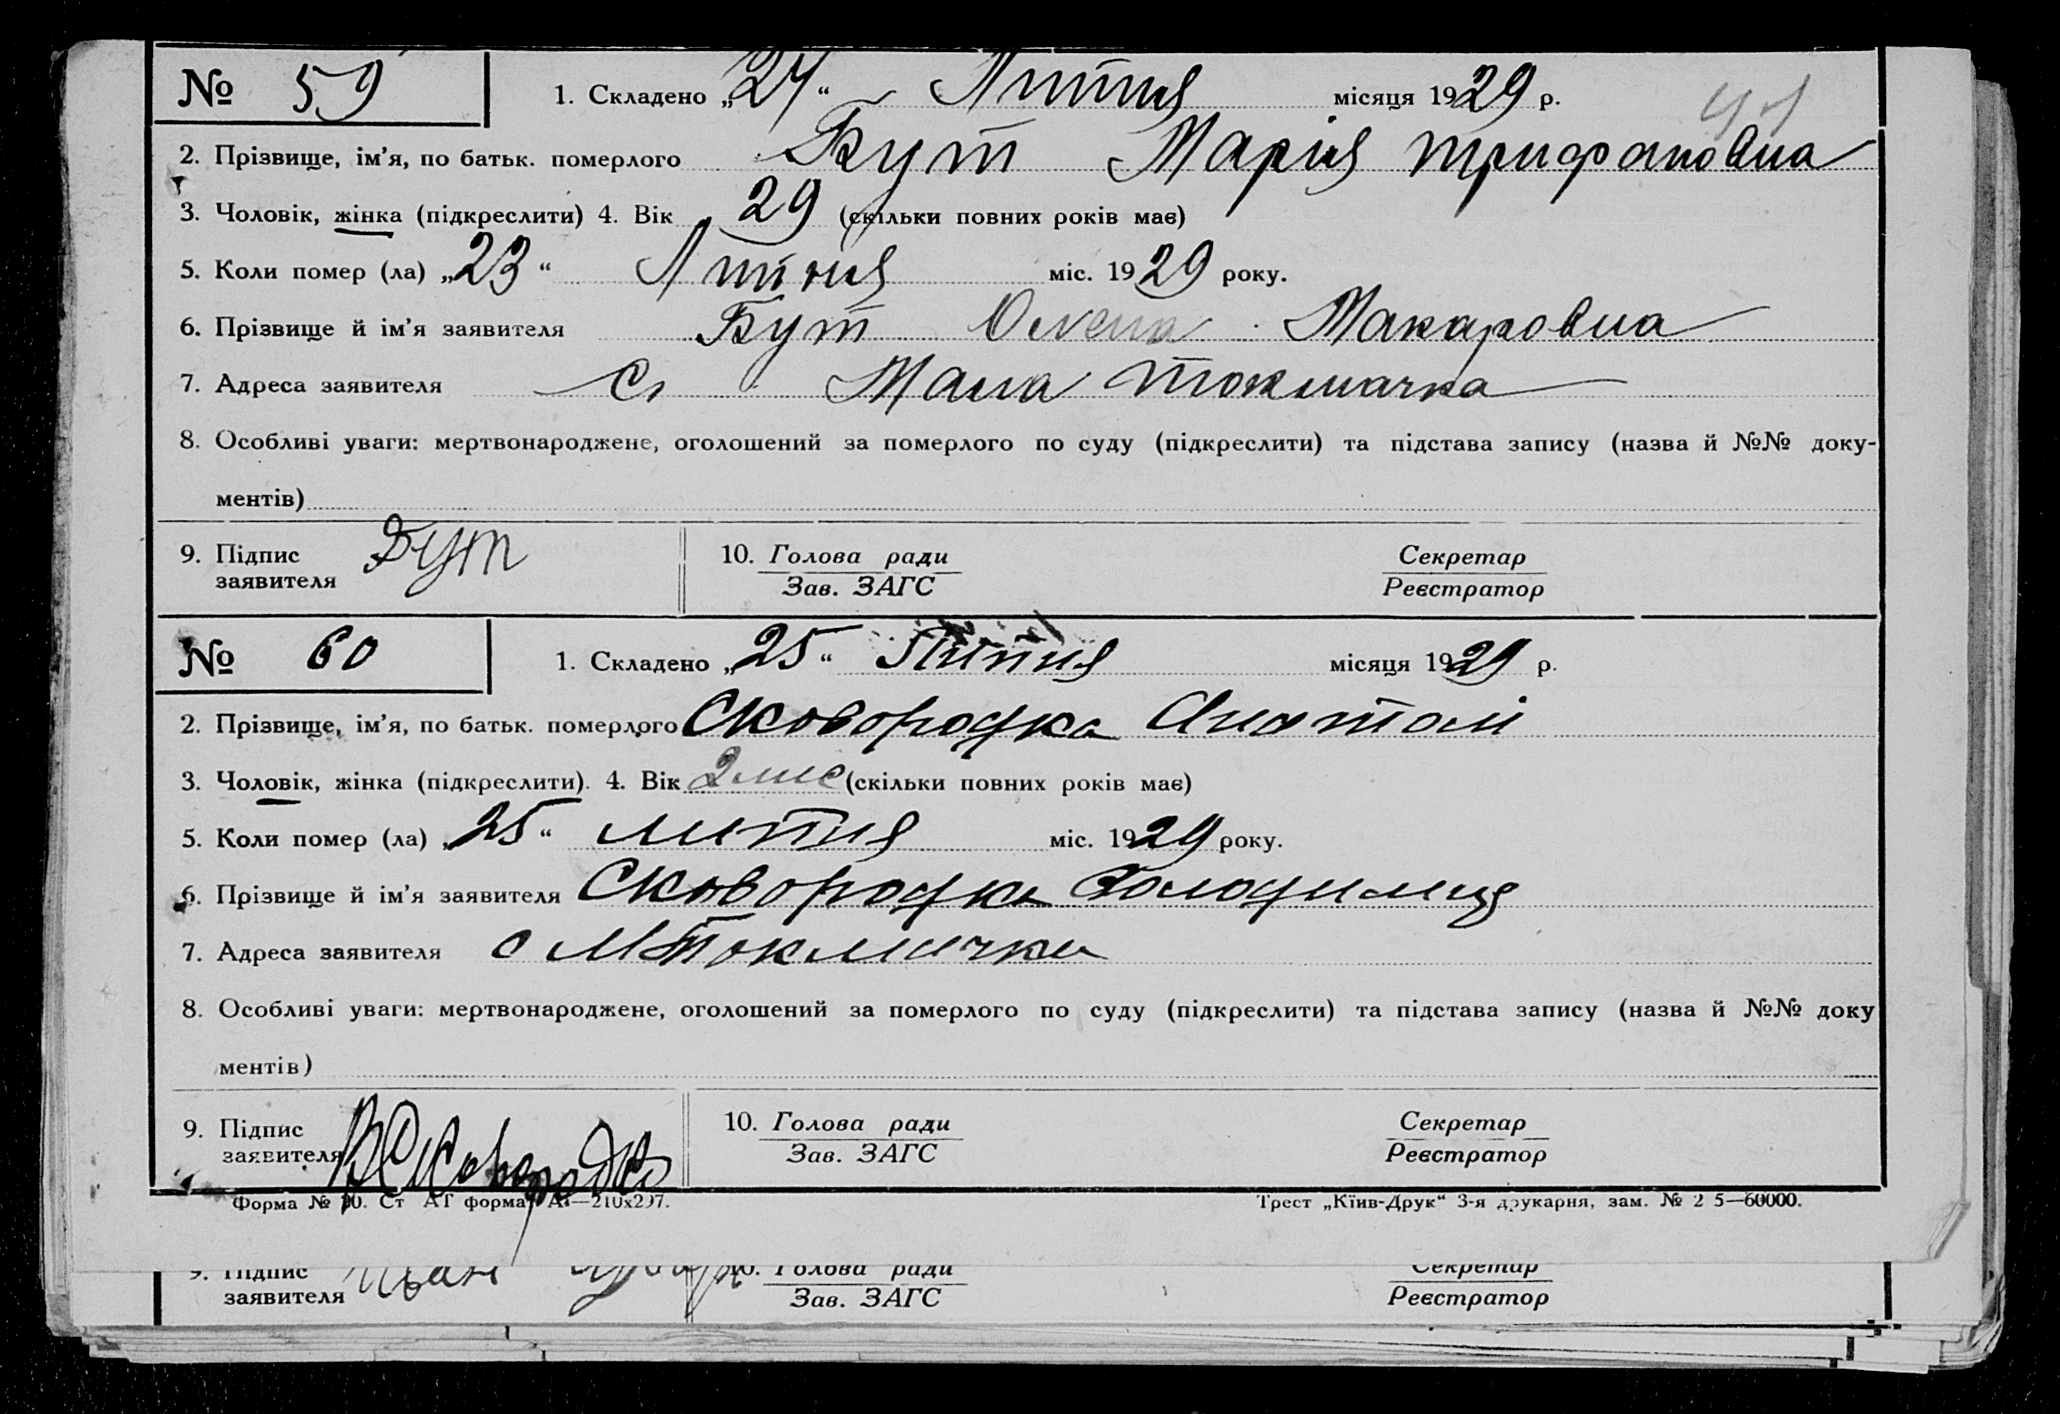 № 59 1. Складено „24“ Липня місяця 1929 р.
2. Прізвище, ім’я, по батьк. померлого Бут Марія Трифановна
3. Чоловік, жінка (підкреслити) 4. Вік 29 (скільки повних років має)
5. Коли помер (ла) „23“ Липня міс. 1929 року.
6. Прізвище й ім’я заявителя Бут Олена Макаровна
7. Адреса заявителя с. Мала Токмачка
8. Особливі уваги: мертвонароджене, оголошений за померлого по суду (підкреслити) та підстава запису (назва й №№ доку-
ментів)
9. Підпис заявителя Бут 10. Голова ради Секретар
Зав. ЗАГС Реєстратор
№ 60 1. Складено „25“ Липня місяця 1929 р.
2. Прізвище, ім’я, по батьк. померлого Сковородка Анатолі
3. Чоловік, жінка (підкреслити). 4. Вік 2 міс (скільки повних років має)
5. Коли помер (ла) „25“ липня міс. 1929 року.
6. Прізвище й ім’я заявителя Сковородка
7. Адреса заявителя с М Токмачка
8. Особливі уваги: мертвонароджене, оголошений за померлого по суду (підкреслити) та підстава запису (назва й №№ доку
ментів)
9. Підпис заявителя ВСковородко 10. Голова ради Секретар
Зав. ЗАГС Реєстратор
Форма № 10. Ст АТ форма А—210х297. Трест „Київ-Друк“ 3-я друкарня, зам. № 2 5—60000.
9. Підпис Іван 10. Голова ради Секретар
заявителя Зав. ЗАГС Реєстратор